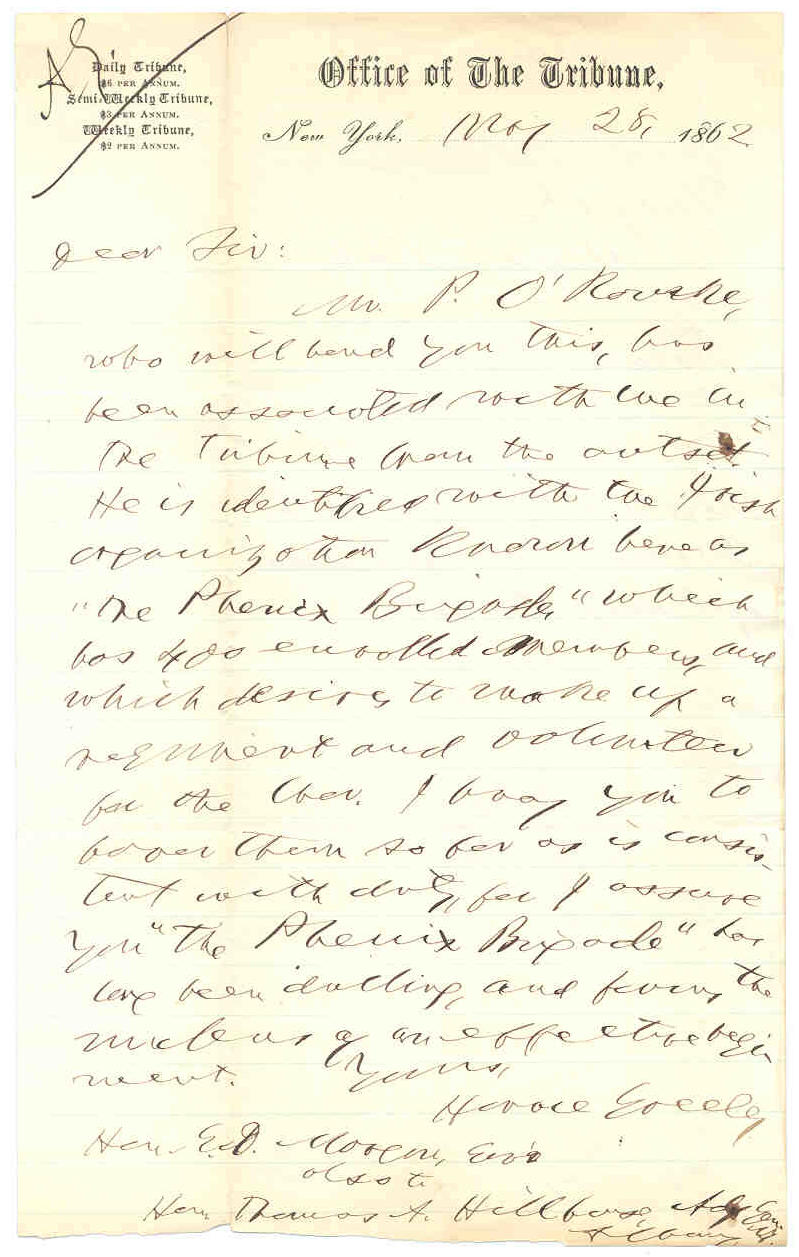 Daily Tribune,
$6 PER ANNUM.
Semi-Weekly Tribune,
$3 PER ANNUM.
Weekly Tribune,
$2 PER ANNUM.
Office of The Tribune,
New York, May 28, 1862
Dear Sir:
Mr. P. O'Rourke,
who will hand you this, has
been associated with me in
The Tribune from the outset.
He is identified with the Irish
organization known here as
"The Phenix Brigade" which
has 400 enrolled members, and
which desires to make up a
regiment and volunteer
for the War. I pray you to
favor them so far as is consis-
tent with duty, for I assure
you "the Phenix Brigade" has
long been drilling, and forms the
nucleus of an effective regi
ment. Yours,
Horace Greeley
Hon. E.D. Morgan, Gov'r
also to
Hon. Thomas A. Hillhouse, Adj. Gen.
Albany